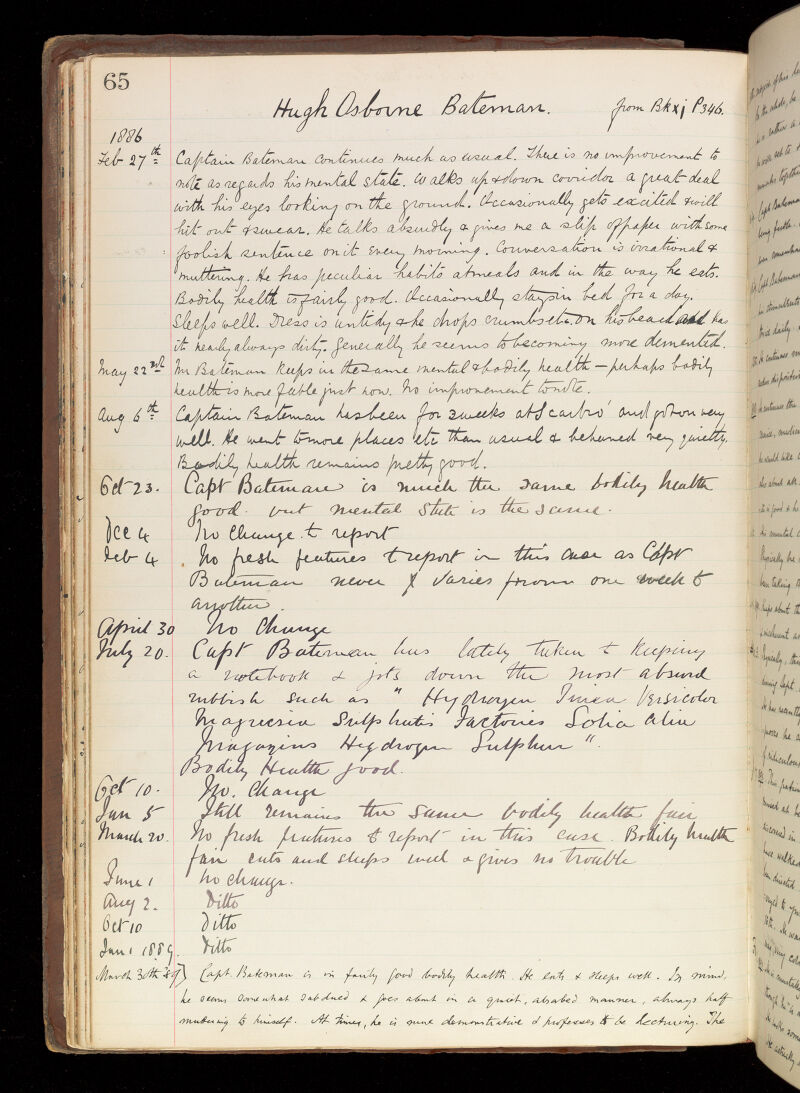 65
Hugh Osborne Bateman. from Bk xj P346.
1886
Feb 27th Captain Bateman continues much as usual. There is no improvement to
note as regards his mental state. Walks up & down corridor a great deal
with his eyes looking on the ground. Occasionally gets excited & will
hit out & swear. He talks absurdly & gives me a slip of paper with some
foolish sentence on it every morning. Conversation is irrational &
muttering. He has peculiar habits at meals and in the way he eats.
Bodily health is fairly good. Occasionally stays in bed for a day.
Sleeps well. Dress is untidy & he drops crumbs etc on his beard and has
it nearly always dirty. Generally he seems to becoming more demented.
May 22nd Mr Bateman keeps in the same mental & bodily health — perhaps bodily
health is more feeble just now. No improvement to note.
Aug 6th Captain Bateman has been for 3 weeks at Scarbro' and got on very
well. He went to more places etc than usual & behaved very quietly.
Bodily health remains pretty good.
Oct 23. Capt Bateman is much the same bodily health
good. but mental state is the same.
Dec 4 No change to report
Feb 4 No fresh features to report in this case as Capt
Bateman never varies from one week to
another.
April 30 No Change
July 20. Capt Bateman has lately taken to keeping
a notebook & jots down the most absurd
rubbish such as " Hydrogen Tinea Versicolor
Magnesia Sulphatis Factories Soha alia
Magazins Hydrogen Sulphur ".
Bodily Health good.
Oct 10. No. Change
Jan 5 Still remains the same bodily health fair
March 20. No fresh features to report in this case. Bodily health
fair eats and sleeps well & gives no trouble
June 1 No change.
Aug 2. Ditto
Oct 10 Ditto
Jan 1 1889. Ditto
March 30th '89} Capt. Bateman is in fairly good bodily health. He eats & sleeps well. In mind,
he seems somewhat subdued & goes about in a quiet, absorbed manner, always half
muttering to himself. At times, he is more demonstrative & professes to be lecturing. The